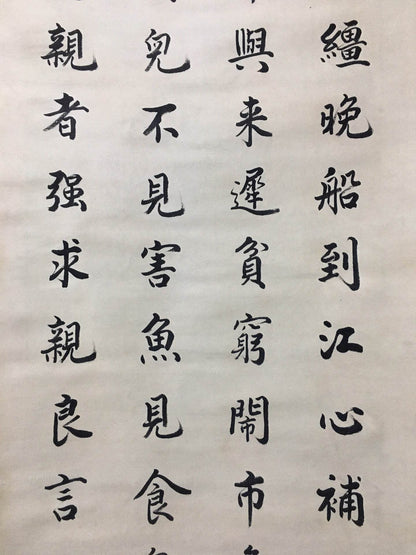 繮晚船到江心補
與来遲貧窮鬧市
兒不見害魚見食
親者强求親良言